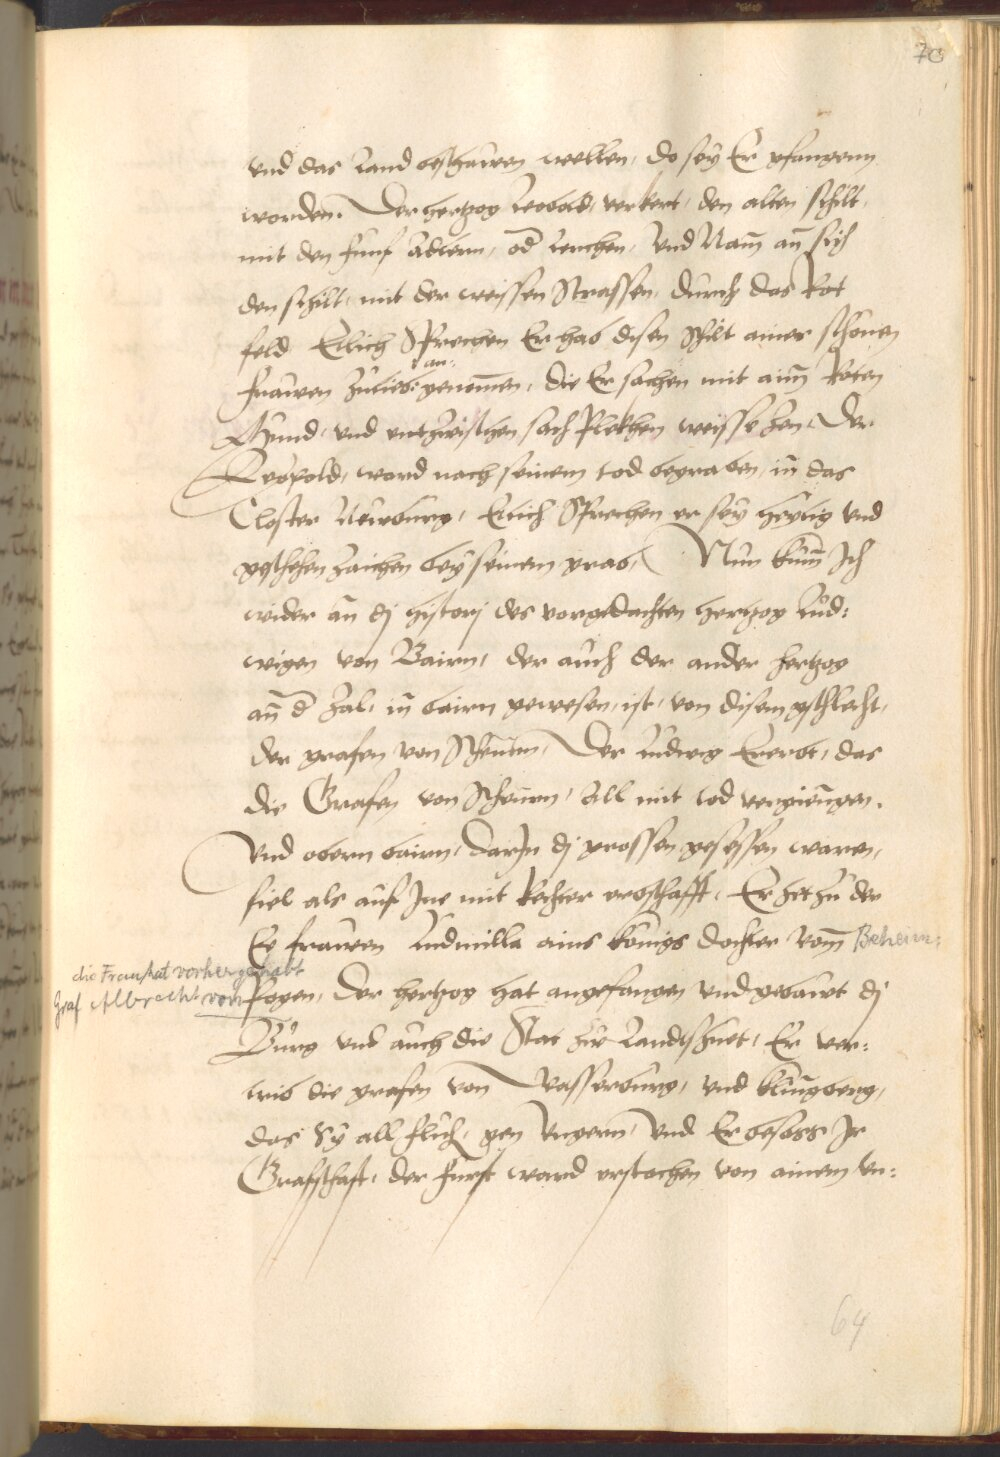 70
vnd das Land beschawen wellen, do sey Er gfangenn
worden. Der hertzog Leobold, verkert, den alten schilt,
mit den funf Adlern, od lerchen, Vnd Nam an sich
den schilt, mit der weissen Strassen, durch das Rot
feld. Etlich Sprechen Er hab disen Schilt ainer schonen
an:
frawen zulieb: genomen, die Er sachen mit aim Roten
Mund, vnd entzwischen sach Plekhen weisse zen. Der
Leopold, ward nach seinem tod begraben, in das
Closter Newburg, Etlich Sprechen er sey heylig vnd
gschehen zaichen bey seinem grab, Nun kum Ich
wider an dj historj des vorgedachten hertzog Lud:
wigen von Bairn, der auch der ander hertzog
an d zal, in bairn gewesen, ist, von disem gschlecht,
der grafen von Scheiern, Der Ludwig Ererbt, das
die Grafen von Scheirn, All mit tod vergiengen.
Vnd obern bairn, darJn dj grossen gesessen waren,
fiel als auf Jne mit Rechter erbschafft, Er het zu der
Ee frawen Ludmilla ains konigs dochter vom Beheim:
die Frau hat vorher gehabt
Graf Albrecht von
Pogen, Der hertzog hat angefangen vnd gebawt dj
Burg vnd auch die Stat zw Landtshuet, Er ver:
trib die grafen von Wasserburg, vnd klingberg,
das Sy all fluch, gen Vngern, Vnd Er besass Jr
Grafschaft, der furst ward erstochen von ainem vn:
64